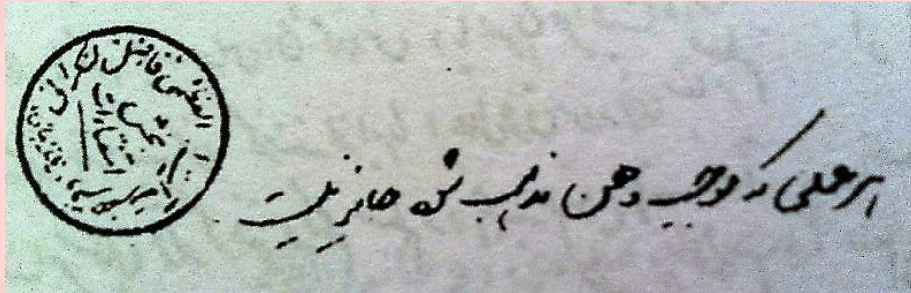 العظمی فاضل لنکرانی
هر عملی که موجب وهن مذهب شود جایز نیست